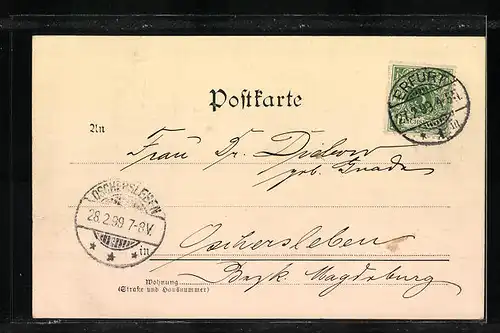 ERFURT
Postkarte
An
Frau Dr.
geb.
OSCHERSLEBEN
28.2.99 7-8V.
Oschersleben
Bezk. Magdeburg
Wohnung
(Straße und Hausnummer)